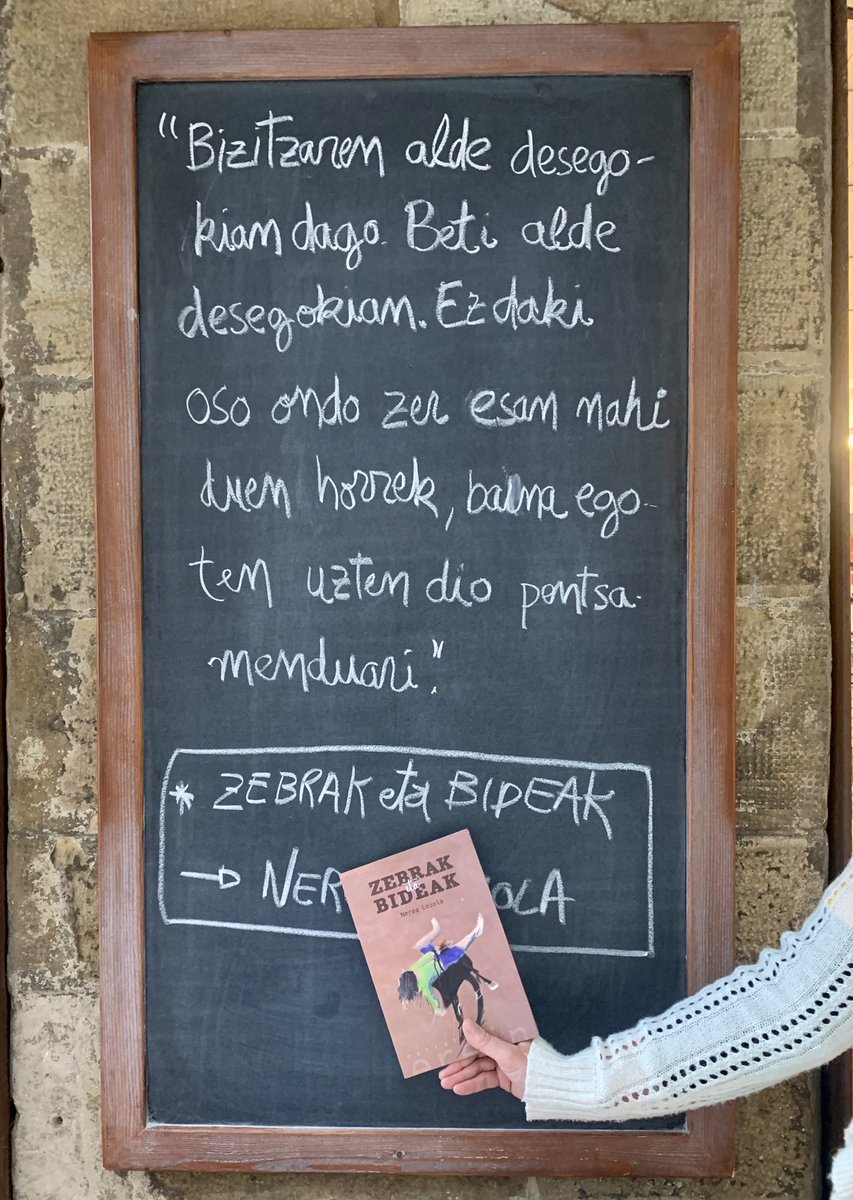 "Bizitzaren alde desego-
kian dago. Beti alde
desegokian. Ez daki
oso ondo zer esan nahi
duen horrek, baina ego-
ten uzten dio pentsa-
menduari."
* ZEBRAK eta BIDEAK
→ NER OLA
ZEBRAK
eta
BIDEAK
Nerea Loiola